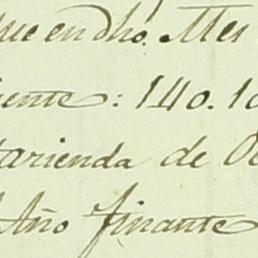 que en dho. Mes
iente: 140. 10
tarienda de O
Año finante